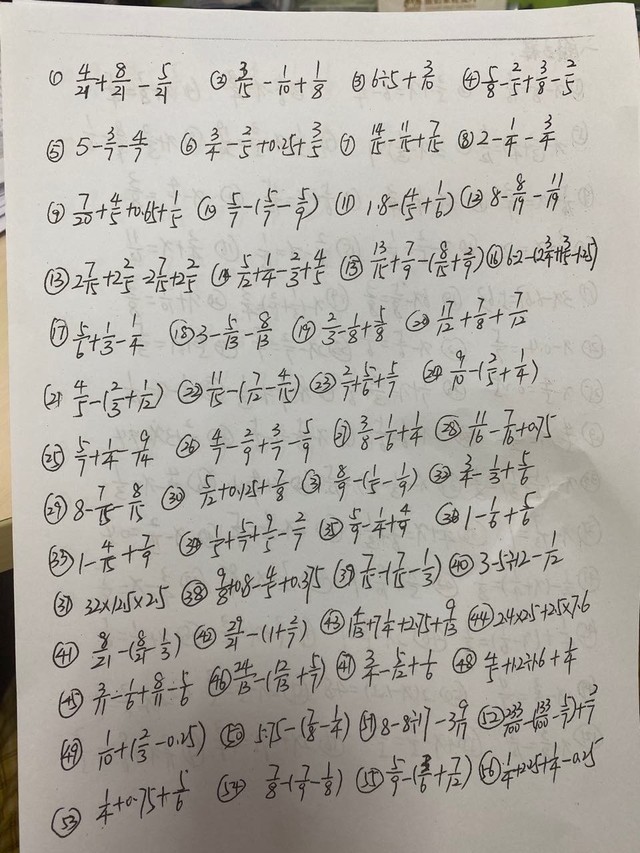 ① 4/21+8/21-5/21 ② 3/15-1/10+1/8 ③ 6÷5+3/10 ④ 5/8-2/5+3/8-2/5
⑤ 5-3/7-4/7 ⑥ 3/4-2/5+0.25+3/5 ⑦ 14/15-11/15+7/15 ⑧ 2-1/4-3/4
⑨ 7/20+4/5+0.65+1/5 ⑩ 5/7-(5/7-5/9) ⑪ 1.8-(4/5+1/6) ⑫ 8-8/19-11/19
⑬ 2 7/15+2 2/5-2 7/15+2 2/5 ⑭ 5/12+1/4-2/3+4/5 ⑮ 13/15+7/9-(8/15+2/9) ⑯ 6.2-(2 3/4+1 3/5-1.25)
⑰ 5/6+1/3-1/4 ⑱ 3-5/13-8/13 ⑲ 2/3-1/8+5/8 ⑳ 17/12+7/8+7/12
㉑ 4/5-(2/3+1/12) ㉒ 11/15-(7/12-4/15) ㉓ 2/7+5/6+5/7 ㉔ 9/10-(2/5+1/4)
㉕ 5/7+1/4-9/14 ㉖ 4/7-2/9+3/7-5/9 ㉗ 3/8-1/6+1/4 ㉘ 11/16-7/16+0.75
㉙ 8-7/15-8/15 ㉚ 5/12+0.125+7/8 ㉛ 8/9-(1/5-1/9) ㉜ 3/4-1/3+5/6
㉝ 1-4/15+7/9 ㉞ 1/5+5/7+9/5-2/7 ㉟ 5/9-1/4+4/9 ㊱ 1-1/6+5/6
㊲ 32×12.5×2.5 ㊳ 9/8+0.8-4/5+0.375 ㊴ 7/15-(7/15-1/3) ㊵ 3-5÷12-1/12
㊶ 8/21-(8/21-1/3) ㊷ 29/21-(1+2/7) ㊸ 1 4/13+7 1/4+2.75+9/13 ㊹ 2.4×2.5+2.5×7.6
㊺ 3/11-1/6+8/11-5/6 ㊻ 24/13-(12/13+5/7) ㊼ 3/4-5/12+1/6 ㊽ 4/5+1.2÷1.6+1/4
㊾ 1/10+(2/3-0.25) ㊿ 5.75-(7/8-1/4) 51 8-8÷17-3 9/17 52 233/100-(133/100-5/7)+2/7
53 1/4+0.75+5/6 54 7/8-(7/9-1/8) 55 5/9-( /6+7/12) 56 1/4+2.25+1/4-0.25